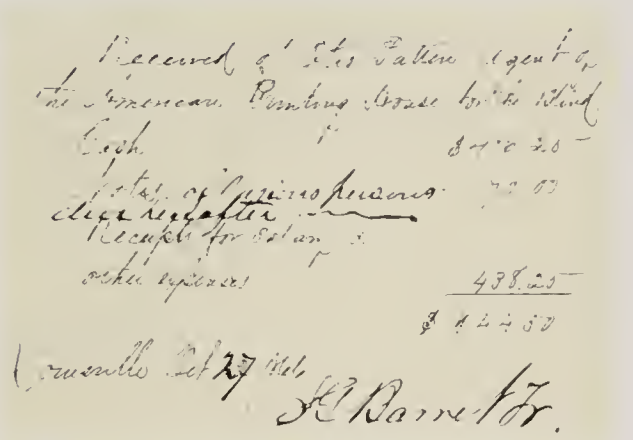 Received of Otis Patten Agent of
the American Printing House for the Blind
Cash
Notes of various persons
due hereafter
Receipts for Salary &
other expenses 438.25
$
Louisville Oct 27
Barret Tr.